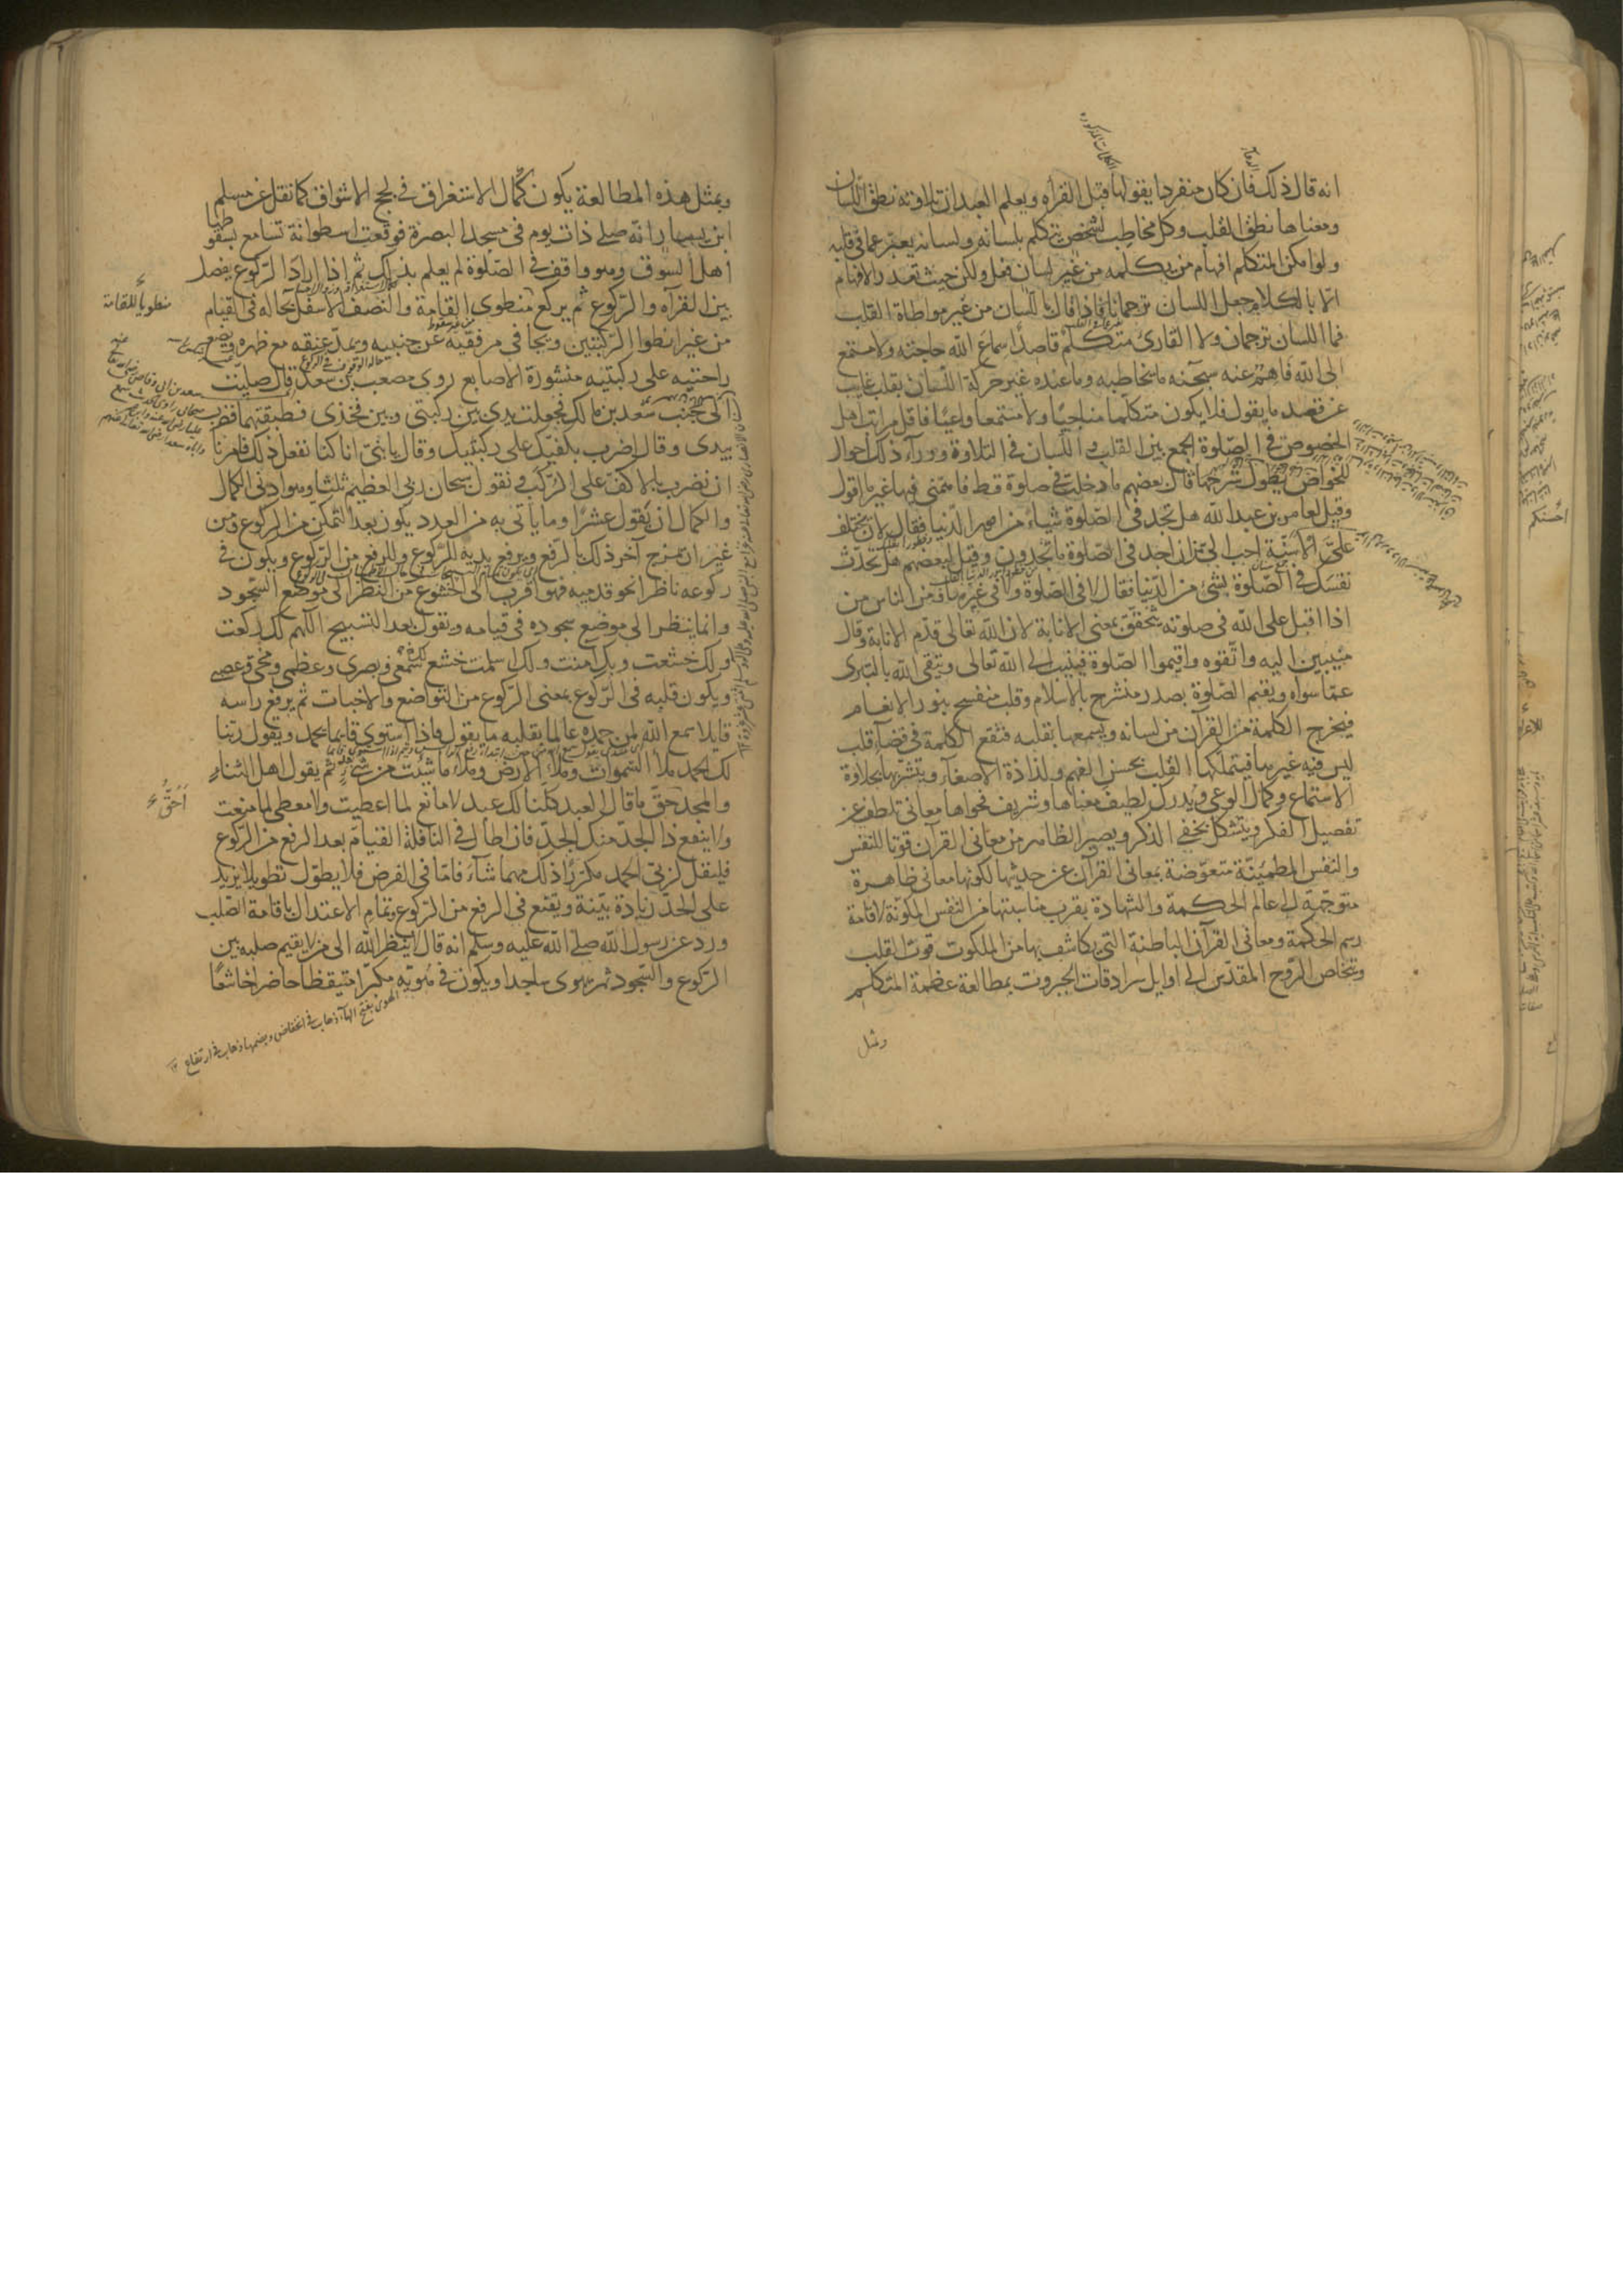 انه قال ذلك فان كان منفردا يقولها قبل القرآه ويعلم العبد ان تلاوته نطق اللسان
ومعناها نطق القلب وكل مخاطب لشخص يتكلم بلسانه ولسانه يعبر عما فى قلبه
ولو امكن المتكلم افهام من يكلمه من غير لسان فعل ولكن حيث تعذر الافهام
الا بالكلام جعل اللسان ترجمانا فاذا قال باللسان من غير مواطاة القلب
فما اللسان ترجمان ولا القارئ متكلم قاصدا اسماع الله حاجته ولا مستمع
الى الله فاهم عنه سبحنه ما يخاطبه وما عنده غير حركة اللسان بقلب غايب
عن قصد ما يقول فلا يكون متكلما مناجيا ولا مستمعا واعيا فاقل مراتب اهل
الخصوص فى الصلوة الجمع بين القلب واللسان فى التلاوة وورآء ذلك احوال
للخواص يطول شرحها قال بعضهم ما دخلت فى صلوة قط فاهمنى فيها غير ما اقول
وقيل لعامر بن عبد الله هل تجد فى الصلوة شيئاء من امور الدنيا فقال لان تختلف
على الاسنة احب الى من ان اجد فى الصلوة ما تجدون وقيل لبعضهم هل تحدث
نفسك فى الصلوة بشئ من الدنيا فقال لا فى الصلوة ولا فى غيرها فمن الناس من
اذا اقبل على الله فى صلوته يتحقق بمعنى الانابة لان الله تعالى قدم الانابة وقال
منيبين اليه واتقوه واقيموا الصلوة فينيب الى الله تعالى ويتقى الله بالتبرى
عما سواه ويقيم الصلوة بصدر منشرح بالاسلام وقلب منفسح بنور الانعام
فيخرج الكلمة من القرآن من لسانه ويسمعها بقلبه فتقع الكلمة فى فضآء قلب
ليس فيه غيرها فيتملكها القلب بحسن الفهم ولذاذة الاصغآء ويتشربها بحلاوة
الاستماع وكمال الوعى ويدرك لطيف معناها وشريف فحواها معانى تلطف عن
تفصيل الفكر ويتشكل بخفى الذكر ويصير الظاهر من معانى القرآن قوتا للنفس
والنفس المطمئنة متعوضة بمعانى القرآن عن حديثها لكونها معانى ظاهرة
متوجهة الى عالم الحكمة والشهادة يقرب مناسبتها من النفس المكونة لاقامة
رسم الحكمة ومعانى القرآن الباطنة التى يكاشف بها من الملكوت قوت القلب
وتخلص الروح المقدس الى اوايل سرادقات الجبروت بمطالعة عظمة المتكلم
ومثل
وبمثل هذه المطالعة يكون كمال الاستغراق فى لجج الاشواق كما نقل عن مسلم
ابن يسار انه صلى ذات يوم فى مسجد البصرة فوقعت اسطوانة تسامع بسقوطها
اهل السوق وهو واقف فى الصلوة لم يعلم بذلك ثم اذا اراد الركوع يفصل
بين القرآه والركوع ثم يركع منطوى القامة والنصف الاسفل بحاله فى القيام
منطويا للقامة
من غير انطوا الركبتين ويجافى مرفقيه عن جنبيه ويمد عنقه مع ظهره ويضع
راحتيه على ركبتيه منشورة الاصابع روى مصعب بن سعد قال صليت
الى جنب سعد بن مالك فجعلت يدى بين ركبتى وبين فخذى وطبقتهما فضرب
بيدى وقال اضرب بكفيك على ركبتيك وقال يا بنى انا كنا نفعل ذلك فامرنا
ان نضرب بالاكف على الركب ونقول سبحان ربى العظيم ثلثا وهو ادنى الكمال
والكمال ان يقول عشرا وما ياتى به من العدد يكون بعد التمكن من الركوع ومن
غير ان يمزج آخر ذلك بالرفع ويرفع يديه للركوع والرفع من الركوع ويكون فى
ركوعه ناظرا نحو قدميه فهو اقرب الى الخشوع من النظر الى موضع السجود
وانما ينظر الى موضع سجوده فى قيامه ويقول بعد التسبيح اللهم لك ركعت
ولك خشعت وبك آمنت ولك اسلمت خشع لك سمعى وبصرى وعظمى ومخى وعصبى
ويكون قلبه فى الركوع بمعنى الركوع من التواضع والاخبات ثم يرفع راسه
قايلا سمع الله لمن حمده عالما بقلبه ما يقول فاذا استوى قايما يحمد ويقول ربنا
لك الحمد ملأ السموات وملأ الارض وملأ ما شئت من شئ ثم يقول اهل الثناء
والمجد حق ما قال العبد كلنا لك عبد لا مانع لما اعطيت ولا معطى لما منعت
احق
ولا ينفع ذا الجد منك الجد فان اطال فى النافلة القيام بعد الرفع من الركوع
فليقل لربى الحمد مكررا ذلك مهما شآء فاما فى الفرض فلا يطول تطويلا يزيد
على الحد زيادة بينة ويقنع فى الرفع من الركوع بتمام الاعتدال باقامة الصلب
ورد عن رسول الله صلى الله عليه وسلم انه قال لا ينظر الله الى من لا يقيم صلبه بين
الركوع والسجود ثم يهوى ساجدا ويكون فى هويه مكبرا متيقظا حاضرا خاشعا
الهوى بفتح الهآ ذهاب فى انخفاض وبضمها ذهاب فى ارتفاع